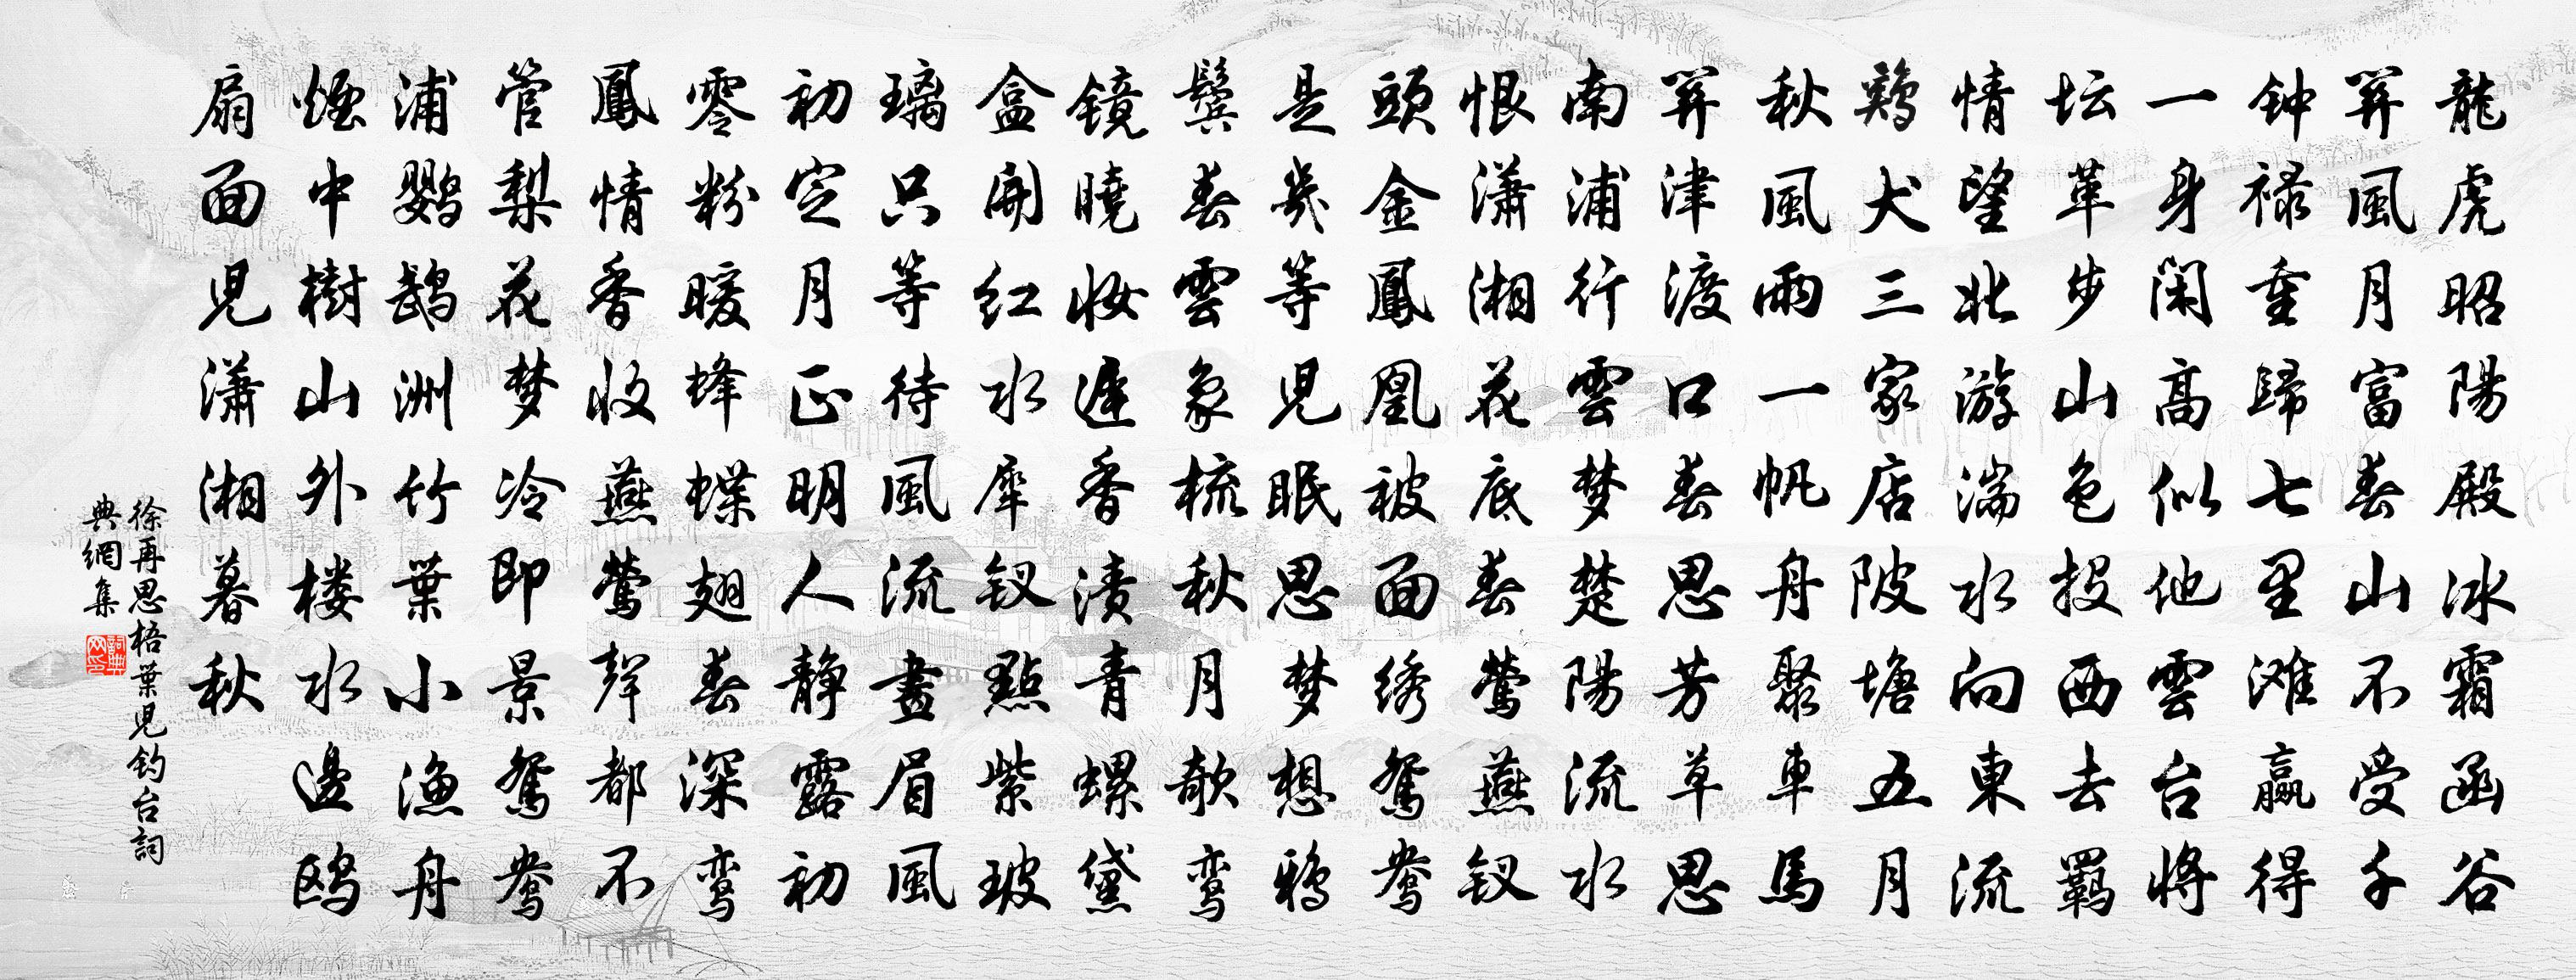 龍虎昭陽殿冰霜函谷
關風月富春山不受千
钟禄重歸七里滩赢得
一身闲高似他雲台將
坛革步山色投西去羁
情望北游湍水向東流
鶏犬三家店陂塘五月
秋風雨一帆舟聚車馬
關津渡口春思芳草思
南浦行雲梦楚陽流水
恨潇湘花底春莺燕钗
頭金鳳凰被面绣鸳鸯
是幾等兒眠思梦想鸦
鬓春雲象梳秋月欹鸾
镜曉妆遲香渍青螺黛
盒開红水犀钗點紫玻
璃只等待風流畫眉風
初定月正明人静露初
零粉暖蜂蝶翅春深鸾
鳳情香收燕莺聲都不
管梨花梦冷即景鸳鸯
浦鹦鹉洲竹葉小漁舟
煙中樹山外楼水邊鸥
扇面兒潇湘暮秋
徐再思梧葉兒钓台詞
典網集
詞典网印